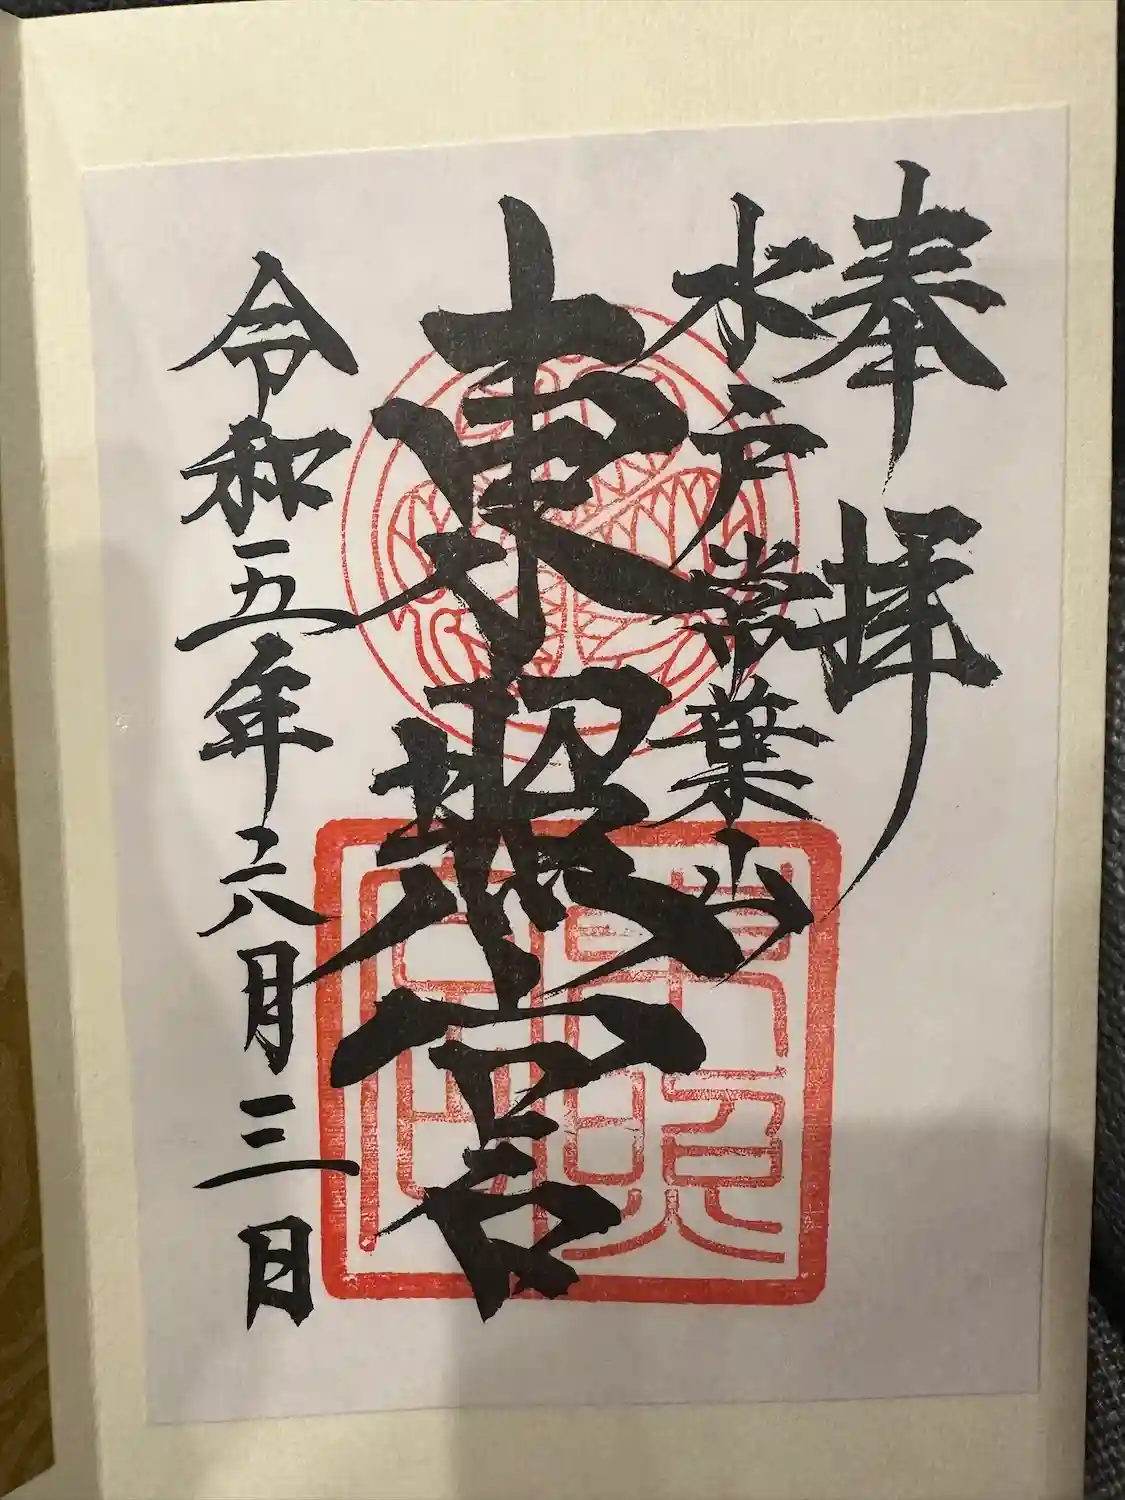 奉拝
水戸常葉山
東照宮
令和五年六月三日
東照宮